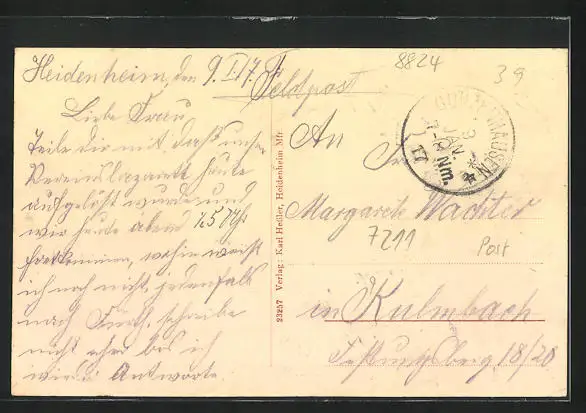 Heidenheim, den 9.I.17.
Feldpost
Liebe Frau
Teile dir mit daß unser
Vereinslazarett heute
aufgelöst wurde und
wir heute abend ½5 Uhr
fortkommen, wohin weiß
ich noch nicht, jedenfalls
nach Fürth, schreibe
nicht eher bis ich
wieder Antworte.
23257 Verlag: Karl Heßler, Heidenheim Mfr.
8824
39
GUNZENHAUSEN
9 JAN.
7-8 Nm.
17
An
Frau
Margarete Wachter
7211
Port
in Kulmbach
Festungsberg 18/20